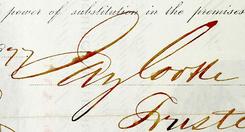 power of substitution in the premises
Jay Cooke
Trust